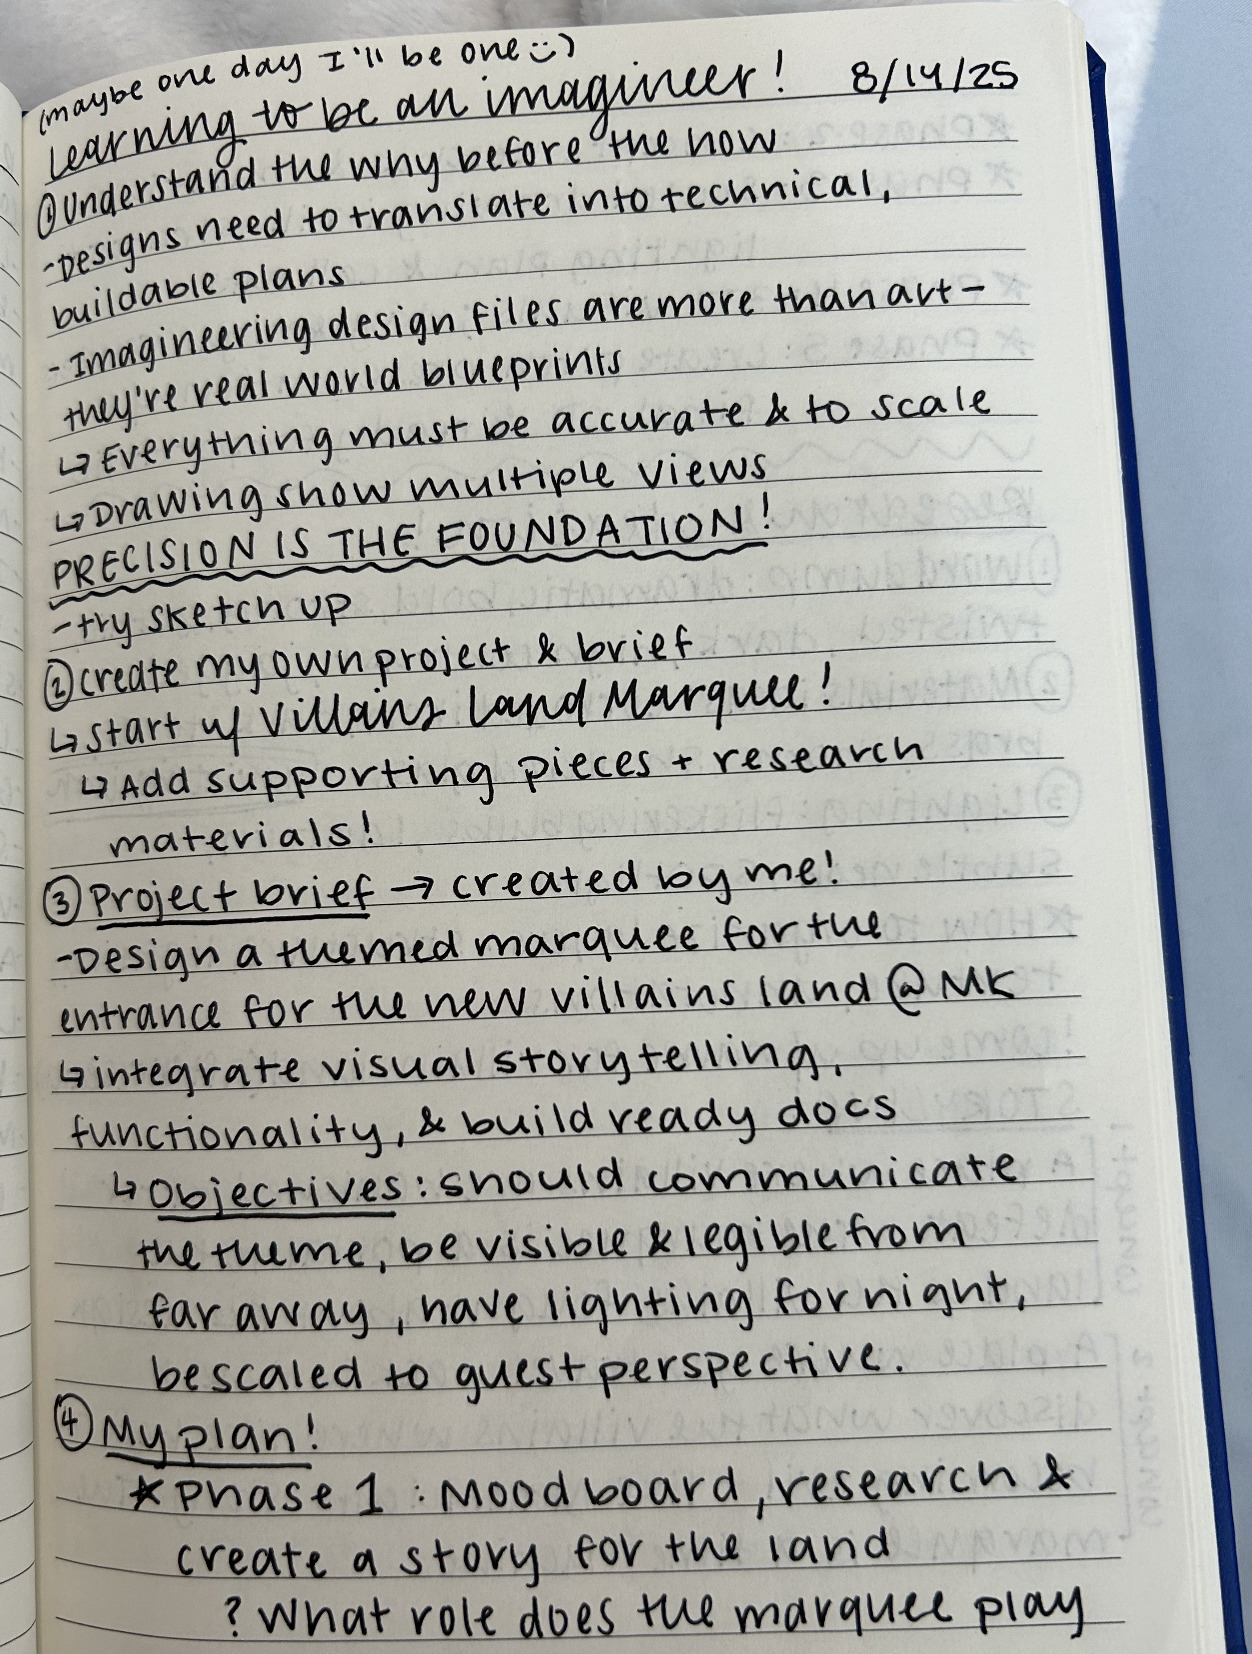 (maybe one day I'll be one :))
Learning to be an imagineer! 8/14/25
① Understand the why before the how
-Designs need to translate into technical,
buildable plans
- Imagineering design files are more than art -
they're real world blueprints
↳ Everything must be accurate & to scale
↳ Drawing show multiple views
PRECISION IS THE FOUNDATION!
- try sketch up
② create my own project & brief
↳ start w/ Villains Land Marquee!
↳ Add supporting pieces + research
materials!
③ Project brief → created by me!
-Design a themed marquee for the
entrance for the new villains land @ MK
↳ integrate visual storytelling,
functionality, & build ready docs
↳ Objectives: should communicate
the theme, be visible & legible from
far away, have lighting for night,
be scaled to guest perspective.
④ My plan!
* Phase 1: Mood board, research &
create a story for the land
? What role does the marquee play